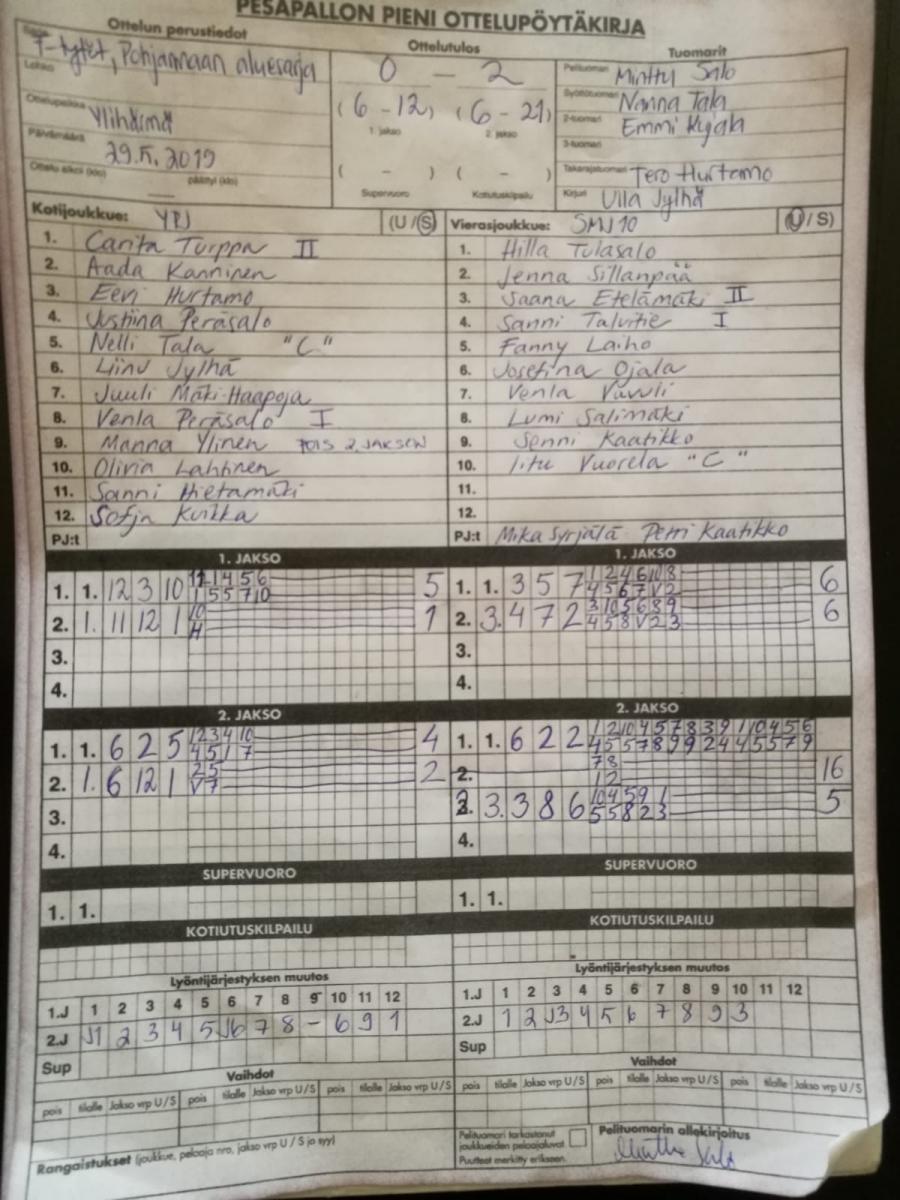 PESÄPALLON PIENI OTTELUPÖYTÄKIRJA
Ottelun perustiedot
F-tytöt, Pohjanmaan aluesarja
Lohko
Ottelupaikka
Ylihärmä
Päivämäärä
29.5.2019
Ottelu alkoi (klo) päättyi (klo)
Ottelutulos
0 - 2
(6 - 12) (6 - 21)
1. jakso 2. jakso
( - ) ( - )
Supervuoro Kotiutuskilpailu
Tuomarit
Pelituomari Minttu Salo
Syöttötuomari Nanna Tala
2-tuomari Emmi
3-tuomari
Takarajatuomari Tero Hurtamo
Kirjuri Ulla Jylhä
Kotijoukkue: YPJ (U/S)
1. Carita Turppa II
2. Aada Kanninen
3. Eevi Hurtamo
4. Justiina Peräsalo
5. Nelli Tala "C"
6. Liinu Jylhä
7. Juuli Mäki-Haapoja
8. Venla Peräsalo I
9. Manna Ylinen POIS 2. JAKSON
10. Olivia Lahtinen
11. Sanni Hietamäki
12. Sofja Kuikka
PJ:t
Vierasjoukkue: SMJ10 (U/S)
1. Hilla Tulasalo
2. Jenna Sillanpää
3. Saana Etelämäki II
4. Sanni Talvitie I
5. Fanny Laiho
6. Josefina Ojala
7. Venla
8. Lumi Salimäki
9. Senni Kaatikko
10. Iitu Vuorela "C"
11.
12.
PJ:t Mika Syrjälä Petri Kaatikko
1. JAKSO
1. 1. 12 3 10 5
2. 1. 11 12 1 10 1
3.
4.
1. JAKSO
1. 1. 3 5 7 1 2 4 6 10 8 6
4 5 6 7 V 2
2. 3. 4 7 2 3 10 5 6 8 9 6
4 5 8 V 2 3
3.
4.
2. JAKSO
1. 1. 6 2 5 1 2 3 4 10 4
4 5 1 7
2. 1. 6 12 1 2 5 2
V 7
3.
4.
2. JAKSO
1. 1. 6 2 2 1 2 10 4 5 7 8 3 9 1 10 4 5 6
4 5 5 7 8 9 9 2 4 4 5 5 7 9
2. 7 8 16
1 2
3. 3. 3 8 6 10 4 5 9 1 5
5 5 8 2 3
4.
SUPERVUORO
1. 1.
SUPERVUORO
1. 1.
KOTIUTUSKILPAILU
KOTIUTUSKILPAILU
Lyöntijärjestyksen muutos
1.J 1 2 3 4 5 6 7 8 9 10 11 12
2.J J1 2 3 4 5 J6 7 8 - 6 9 1
Sup
Lyöntijärjestyksen muutos
1.J 1 2 3 4 5 6 7 8 9 10 11 12
2.J 1 2 J3 4 5 6 7 8 9 3
Sup
Vaihdot
pois tilalle Jakso vrp U/S pois tilalle Jakso vrp U/S pois tilalle Jakso vrp U/S
Vaihdot
pois tilalle Jakso vrp U/S pois tilalle Jakso vrp U/S pois tilalle Jakso vrp U/S
Rangaistukset (joukkue, pelaaja nro, jakso vrp U / S ja syy)
Pelituomari tarkastanut
joukkueiden pelaajaluvat.
Puutteet merkitty erikseen.
Pelituomarin allekirjoitus
Minttu Salo